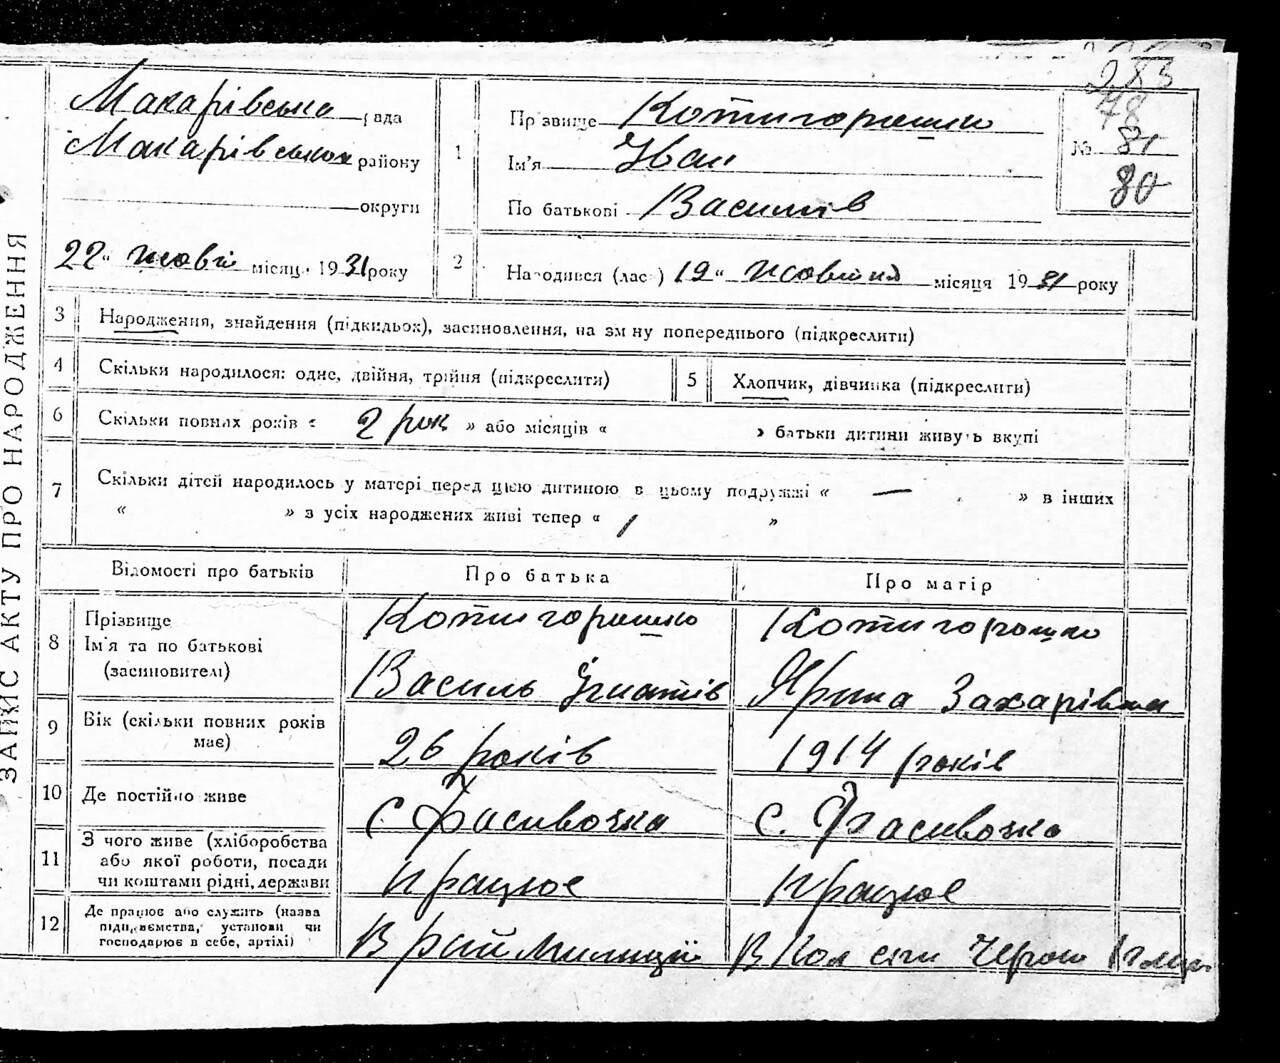 ЗАПИС АКТУ ПРО НАРОДЖЕННЯ
Макарівська рада
Макарівського району
округи
22 " жовт місяц 1931 року
283
78
№ 81
80
1
Прізвище Котигорошко
Ім'я Іван
По батькові Василів
2
Народився (лас ) 19 " жовтня місяця 1931 року
3 Народження, знайдення (підкидьок), засиновлення, на зміну попереднього (підкреслити)
4 Скільки народилося: одне, двійня, трійня (підкреслити)
5 Хлопчик, дівчинка (підкреслити)
6 Скільки повних років « 2 рок » або місяців « » батьки дитини живуть вкупі
7 Скільки дітей народилось у матері перед цією дитиною в цьому подружжі « — » в інших
« » з усіх народжених живі тепер « 1 »
Відомості про батьків Про батька Про матір
8 Прізвище Котигорошко Котигорошко
Ім'я та по батькові
(засиновителі) Василь Ігнатів Ярина Захарівна
9 Вік (скільки повних років має) 26 років 1914 років
10 Де постійно живе с. Фасивочка с. Фасивочка
11 З чого живе (хліборобства
або якої роботи, посади
чи коштами рідні, держави працює працює
12 Де працює або служить (назва
підприємства, установи чи
господарює в себе, артілі) В рай милиції В Кол